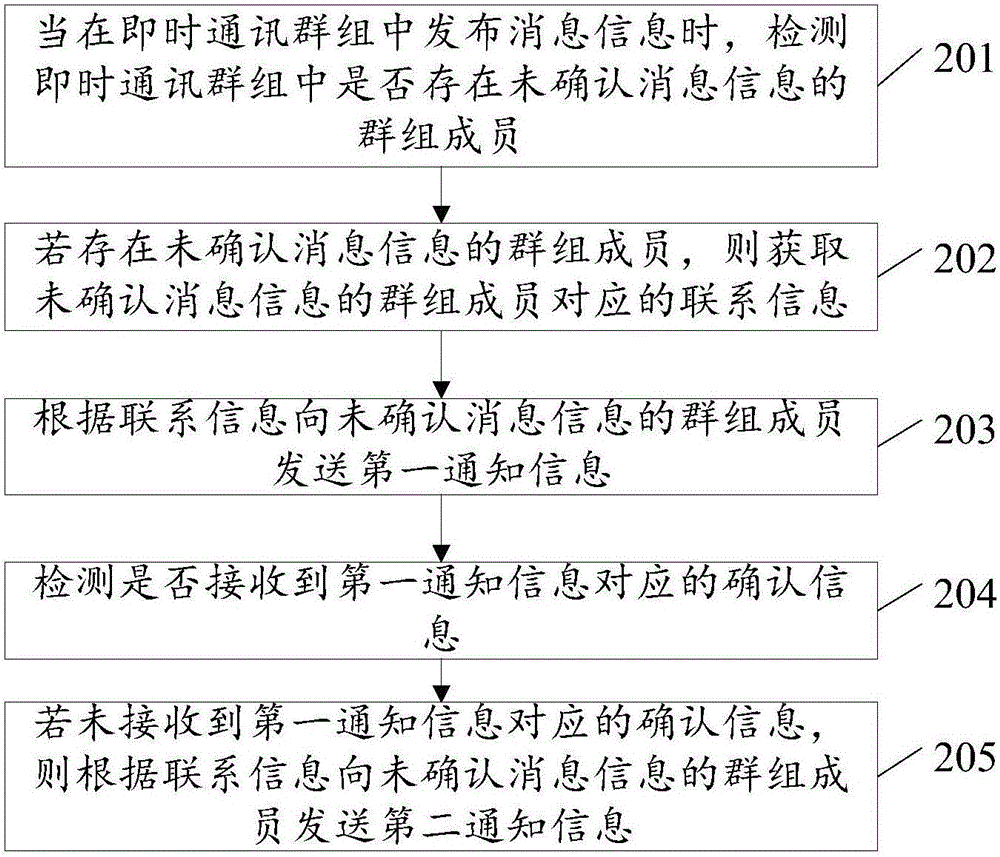 当在即时通讯群组中发布消息信息时，检测
即时通讯群组中是否存在未确认消息信息的
群组成员
201
若存在未确认消息信息的群组成员，则获取
未确认消息信息的群组成员对应的联系信息
202
根据联系信息向未确认消息信息的群组成员
发送第一通知信息
203
检测是否接收到第一通知信息对应的确认信
息
204
若未接收到第一通知信息对应的确认信息，
则根据联系信息向未确认消息信息的群组成
员发送第二通知信息
205